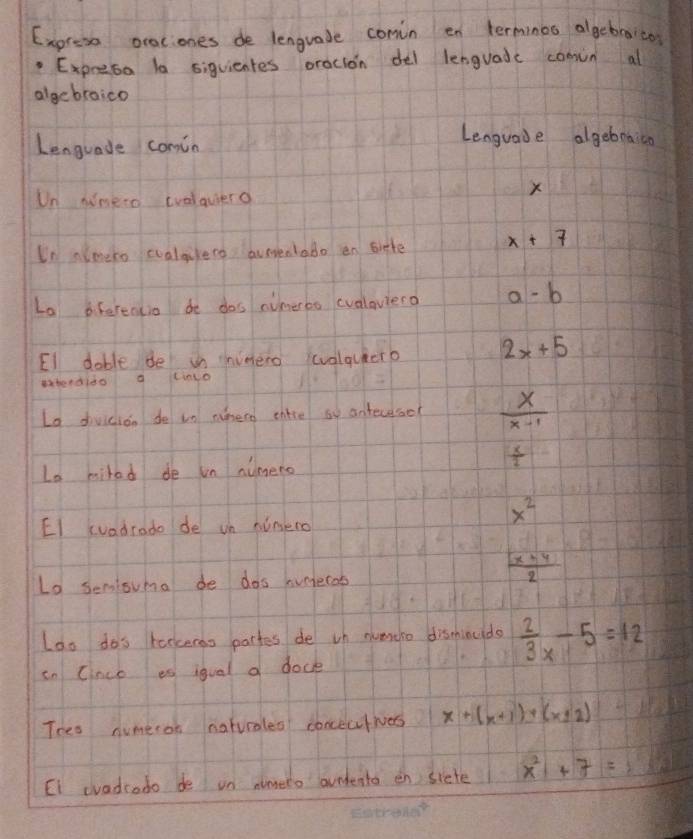 Expresa oraciones de lenguade común en terminos algebraicos
• Expresa la siguientes oración del lenguade común al
algebraico
Lenguade común Lenguade algebraico
Un número cualquiera x
Un número cualquiera aumentado en siete x + 7
La diferencia de dos números cualquiera a - b
El doble de un número cualquiera 2x + 5
extendido a cinco
La divición de un número entre su antecesor x/x-1
La mitad de un número x/2
El cuadrado de un número x²
La semisuma de dos numeros x+y/2
Las dos terceras partes de un número disminuido 2/3x - 5 = 12
en Cinco es igual a doce
Tres numeros naturales concecutivos x + (x+1) + (x+2)
El cuadrado de un número aumento en siete x² + 7 =
Estrella